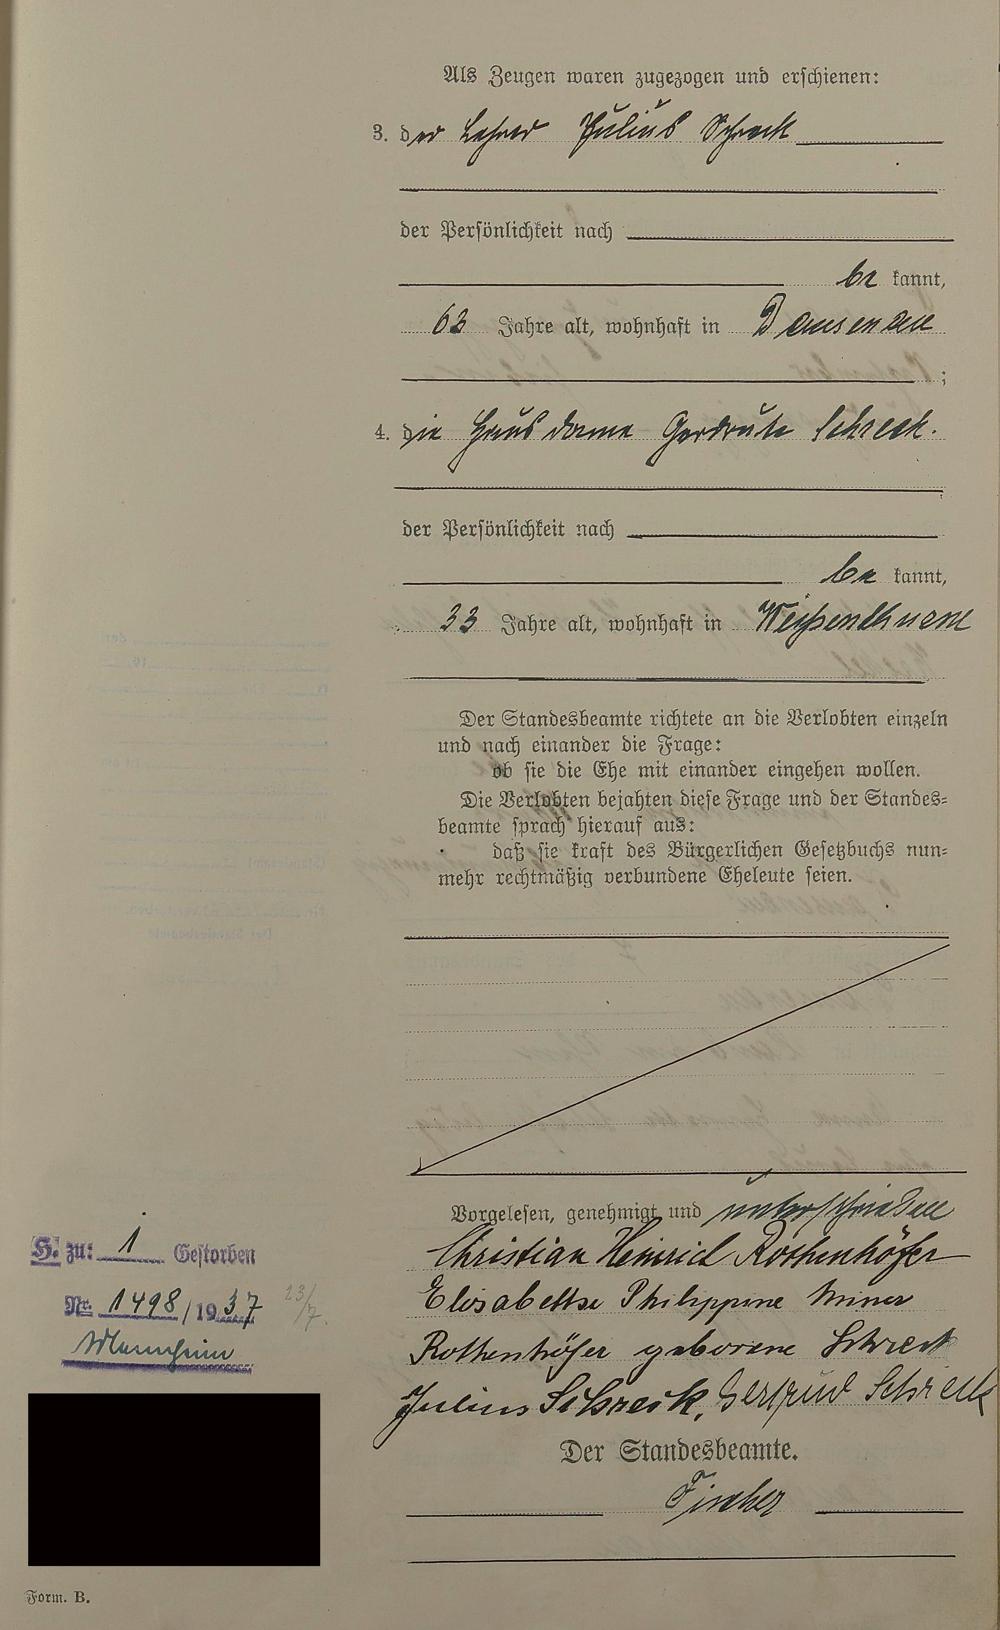 Als Zeugen waren zugezogen und erschienen:
3. der Lehrer Julius Schreck
der Persönlichkeit nach
be kannt,
63 Jahre alt, wohnhaft in Dausenau
;
4. die Hausdame Gertrude Schreck.
der Persönlichkeit nach
be kannt,
33 Jahre alt, wohnhaft in Weißenthurm
Der Standesbeamte richtete an die Verlobten einzeln
und nach einander die Frage:
ob sie die Ehe mit einander eingehen wollen.
Die Verlobten bejahten diese Frage und der Standes=
beamte sprach hierauf aus:
daß sie kraft des Bürgerlichen Gesetzbuchs nun=
mehr rechtmäßig verbundene Eheleute seien.
Vorgelesen, genehmigt und unterschrieben
Christian Heinrich Rothenhöfer
Elisabethe Philippine Minna
Rothenhöfer geborene Schreck
Julius Schreck, Gertrud Schreck
Der Standesbeamte.
Fischer
H. zu: 1 Gestorben
Nr. 1498/1937 23/7.
Mannheim
Form. B.